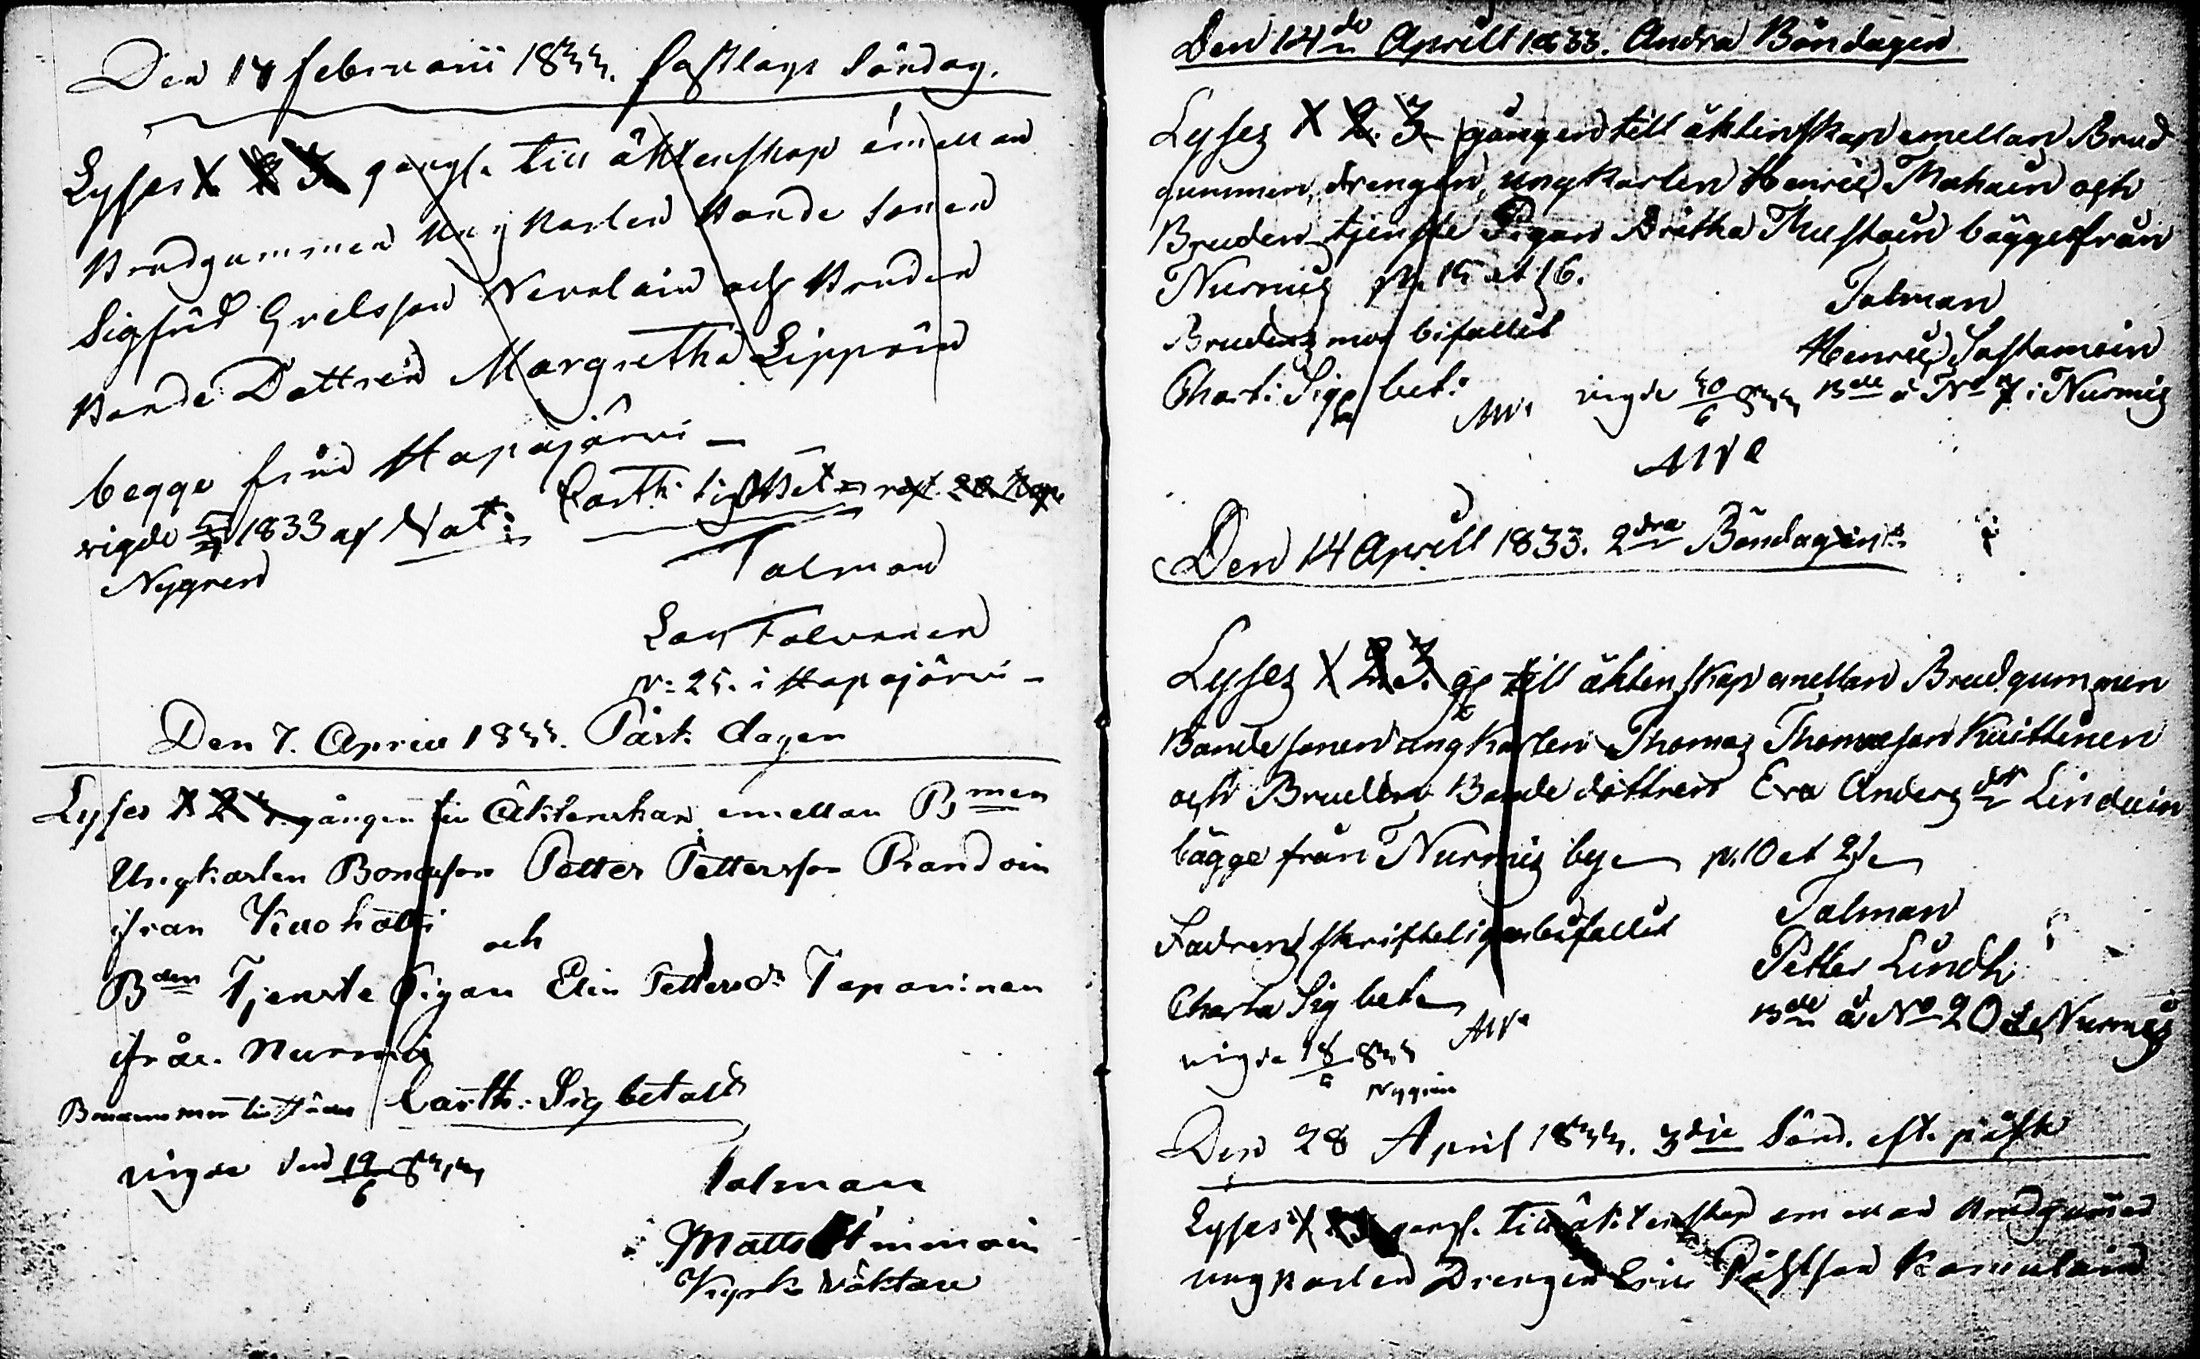 Den 17 februarii 1833. fastlags Söndag.
Lyses 1 2 3 gångl. till äktenskap emellan
Brudgummen Ungkarlen Bonde sonen
Sigfrid Grelsson Nevalain och Bruden
Bonde Dottren Margretha Lippoin
begge från Hapajärvi
vigde 1833 af Vat: Carth: sig: bet.
Nygren
Talman
Lars Tolvanen
N: 25. i Hapajärvi
Den 7. Aprill 1833. Påsk dagen
Lyses 1 2 3 gången till Äktenskap emellan Bmen
Ungkarlen Bondeson Petter Pettersson Randoin
ifrån Kuohatti
och
Bden Tjenste Pigan Elin Pettersdr Tapaninen
ifrån Nurmis
Carth: Sig betalt
vigde den 19/6 833
Talman
Matts Immoin
Kyrko väktare
Den 14de Aprill 1833. Andra Böndagen
Lyses 1 2 3 gången till äktenskap emellan Brud
gummen, drengen, ungkarlen Henric Mahain och
Bruden tjenste Pigan Britha Mustoin bägge från
Nurmis N. 15 et 16.
Talman
Brudens mor bifallit
Henric Sastamoin
Chart: Sig bet: vigde 30/6 833 Bde å No 7 i Nurmis
Den 14 Aprill 1833. 2dra Böndagen
Lyses 1 2 3 gg till äktenskap emellan Brudgummen
Bonde sonen ungkarlen Thomas Thomasson Kuittinen
och Bruden Bonde dottren Eva Anders dr Lindain
bägge från Nurmis by N. 10 et 21
Talman
Fadrens skrifteligen bifallit
Petter Lindh
Charta Sig bet
Bde å No 20 i Nurmis
vigde 18/6 833
Nygren
Den 28 April 1833. 3die Sönd. eft. påsk
Lyses 1 2 3 gångl. till äktenskap emellan Brudgummen
ungkarlen Drengen Eric Påhlson Komulain